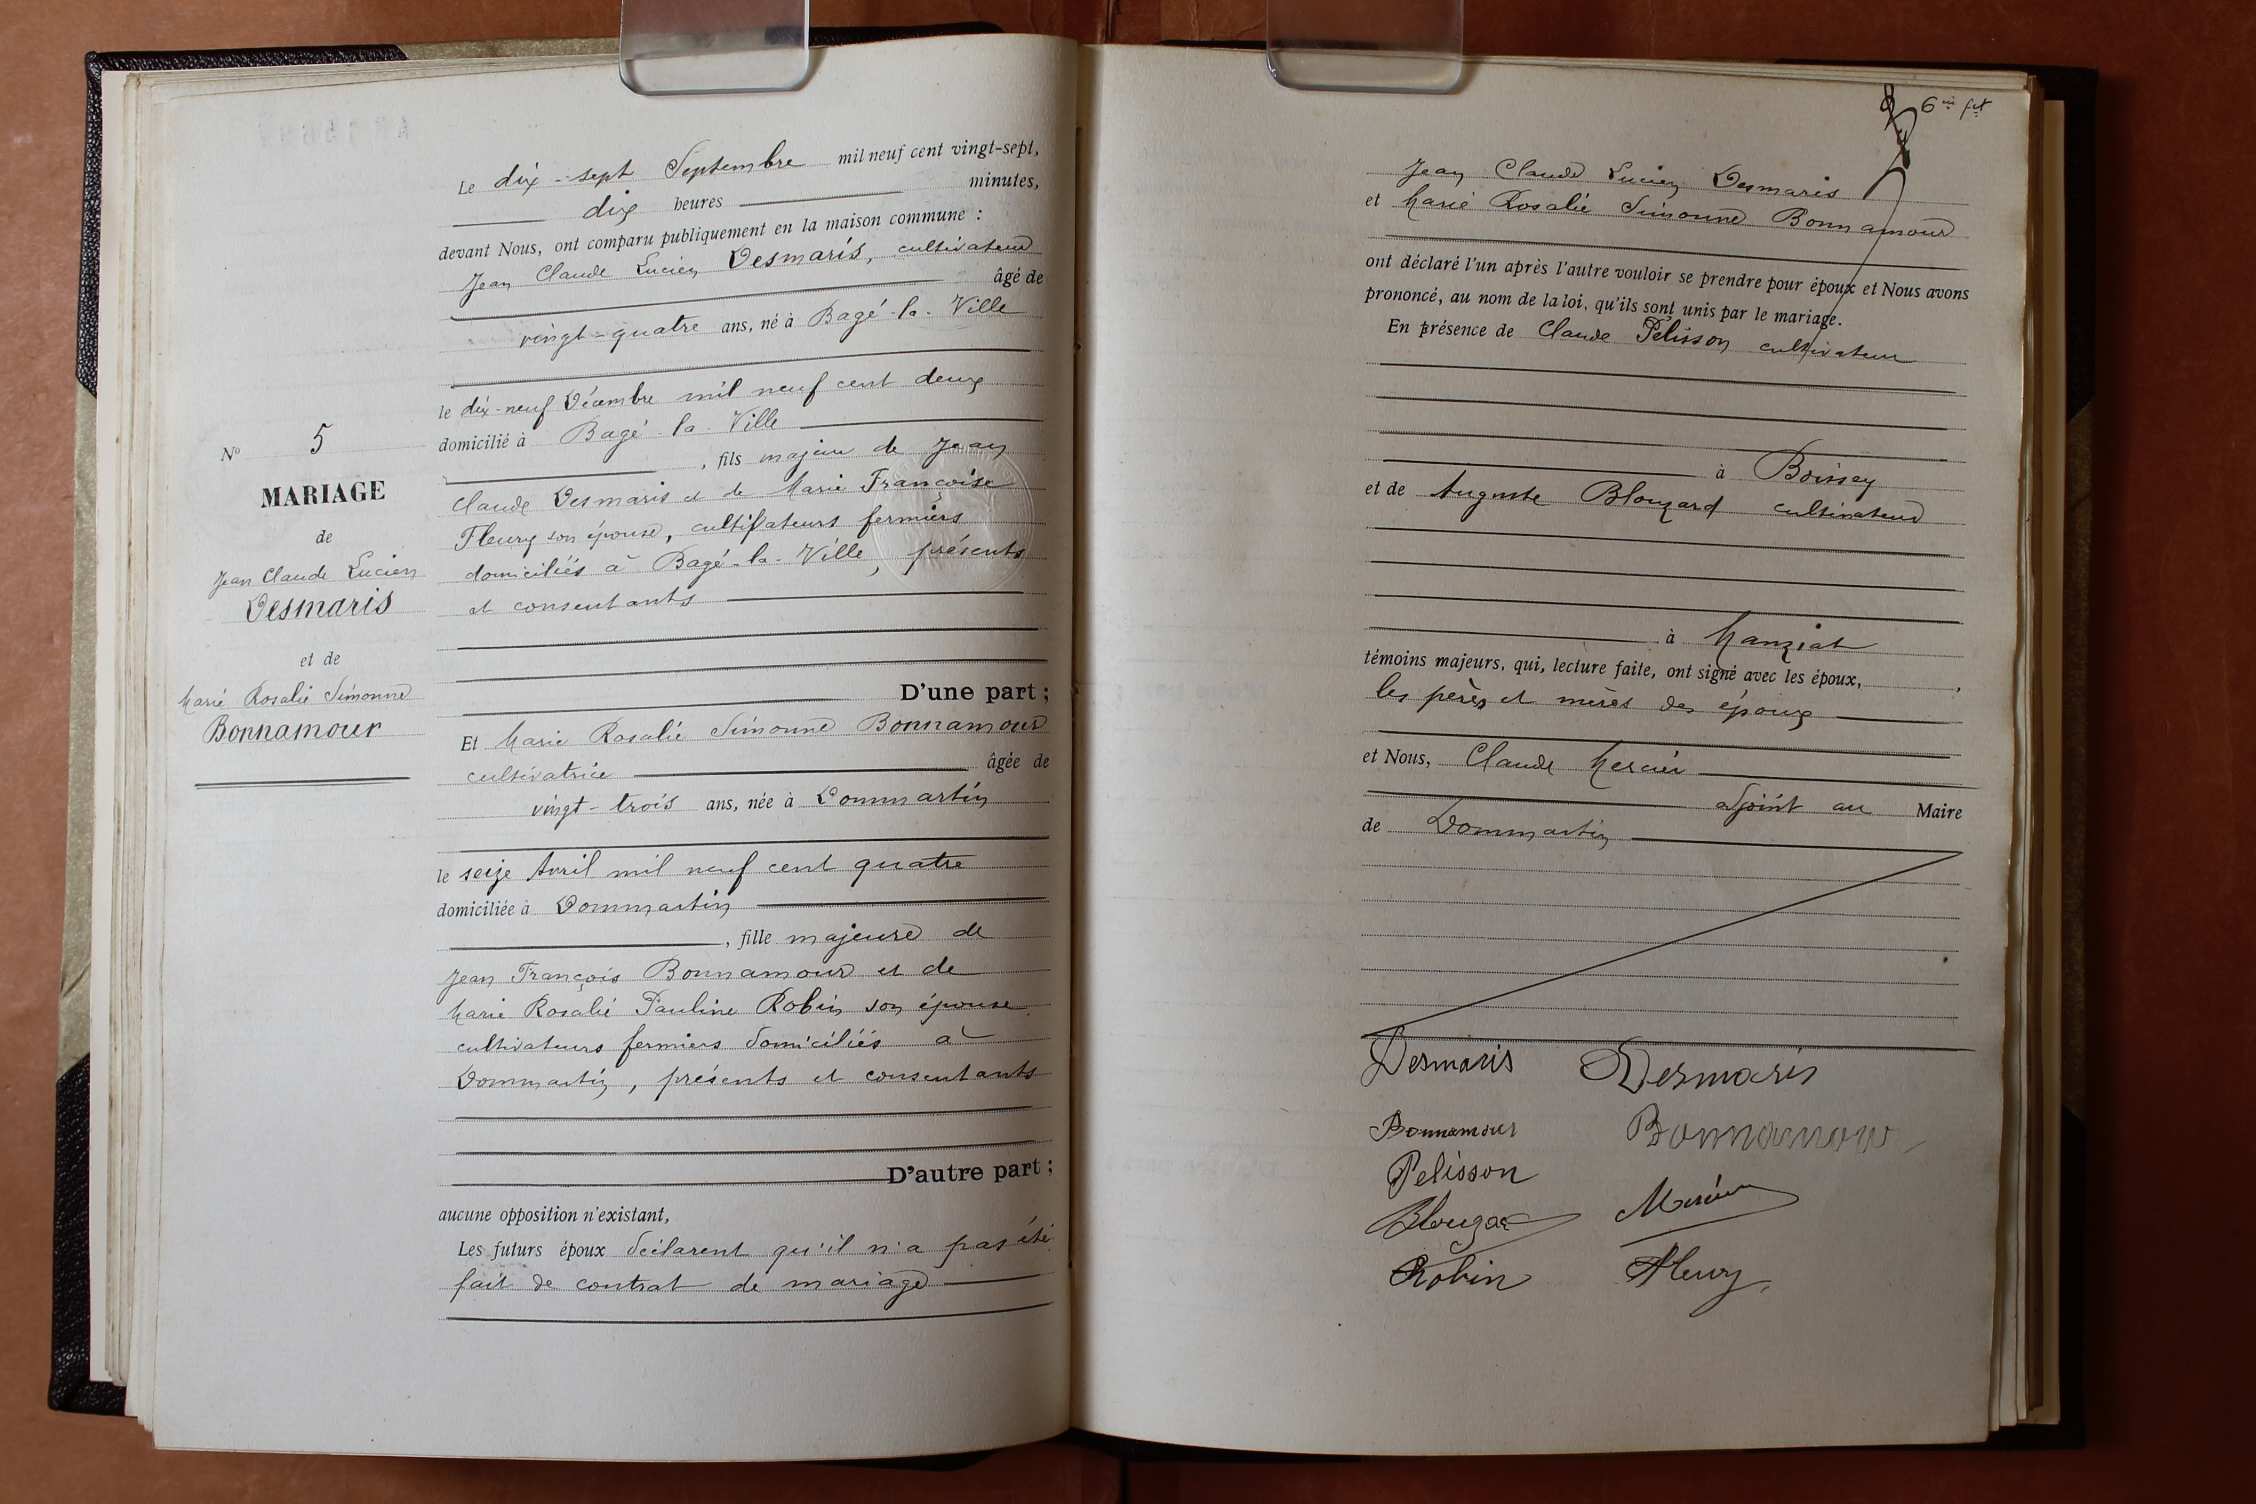 Le dix-sept Septembre mil neuf cent vingt-sept,
dix heures minutes,
devant Nous, ont comparu publiquement en la maison commune :
Jean Claude Lucien Desmaris, cultivateur
âgé de
vingt-quatre ans, né à Bagé-la-Ville
le dix-neuf Décembre mil neuf cent deux
domicilié à Bagé-la-Ville
, fils majeur de Jean
Claude Desmaris et de Marie Françoise
Fleury son épouse, cultivateurs fermiers
domiciliés à Bagé-la-Ville, présents
et consentants
D'une part ;
Et Marie Rosalie Simonne Bonnamour
cultivatrice âgée de
vingt-trois ans, née à Dommartin
le seize Avril mil neuf cent quatre
domiciliée à Dommartin
, fille majeure de
Jean François Bonnamour et de
Marie Rosalie Pauline Robin son épouse
cultivateurs fermiers domiciliés à
Dommartin, présents et consentants
D'autre part ;
aucune opposition n'existant,
Les futurs époux déclarent qu'il n'a pas été
fait de contrat de mariage
N° 5
MARIAGE
de
Jean Claude Lucien
Desmaris
et de
Marie Rosalie Simonne
Bonnamour
Jean Claude Lucien Desmaris
et Marie Rosalie Simonne Bonnamour
ont déclaré l'un après l'autre vouloir se prendre pour époux et Nous avons
prononcé, au nom de la loi, qu'ils sont unis par le mariage.
En présence de Claude Pélisson cultivateur
à Boissey
et de Auguste Blouzard cultivateur
à Manziat
témoins majeurs, qui, lecture faite, ont signé avec les époux,
les pères et mères des époux
et Nous, Claude Mercier
adjoint au Maire
de Dommartin
Desmaris Desmaris
Bonnamour Bonnamour
Pelisson
Blouzar Mercier
Robin Fleury